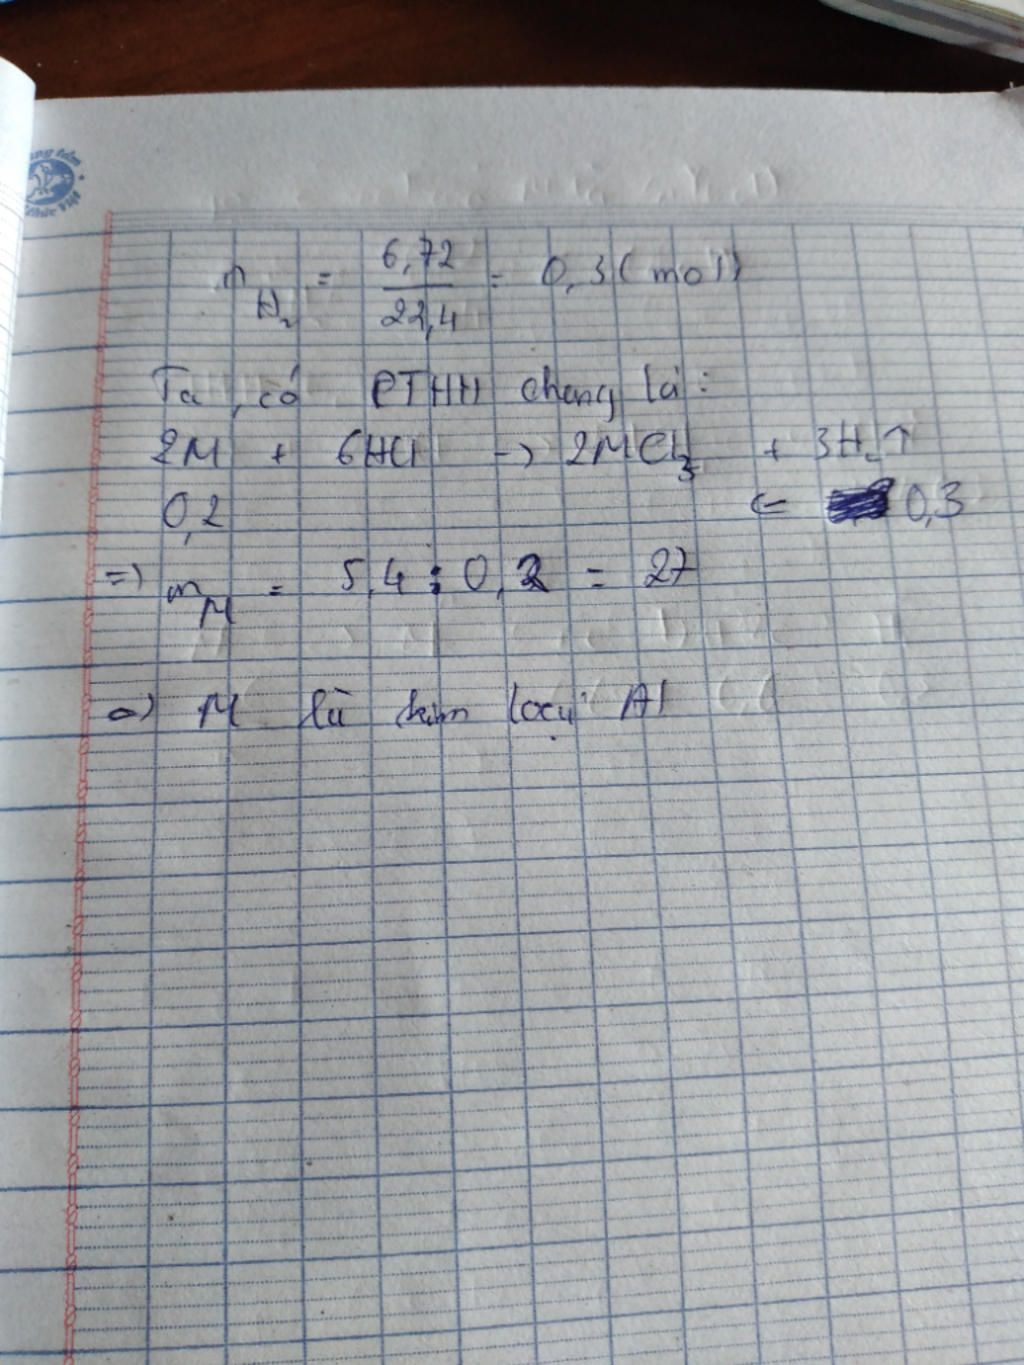 n H₂ = 6,72 / 22,4 = 0,3 (mol)
Ta có PTHH chung là:
2M + 6HCl → 2MCl₃ + 3H₂↑
0,2 ← 0,3
=> m M = 5,4 : 0,2 = 27
=> M là kim loại Al